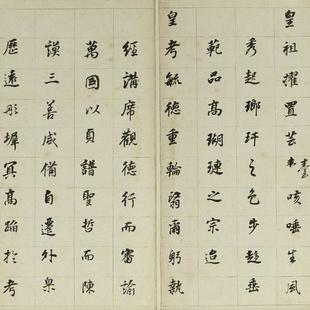 皇祖擢置芸臺咳唾生風
秀起瑯玕之色步趨垂
範品高瑚璉之宗迨
皇考毓德重輪資爾躬執
經講席觀德行而審諭
萬國以貞譜聖哲而陳
謨三善咸備自遷外臬
歷遠彤墀冥高蹈於考